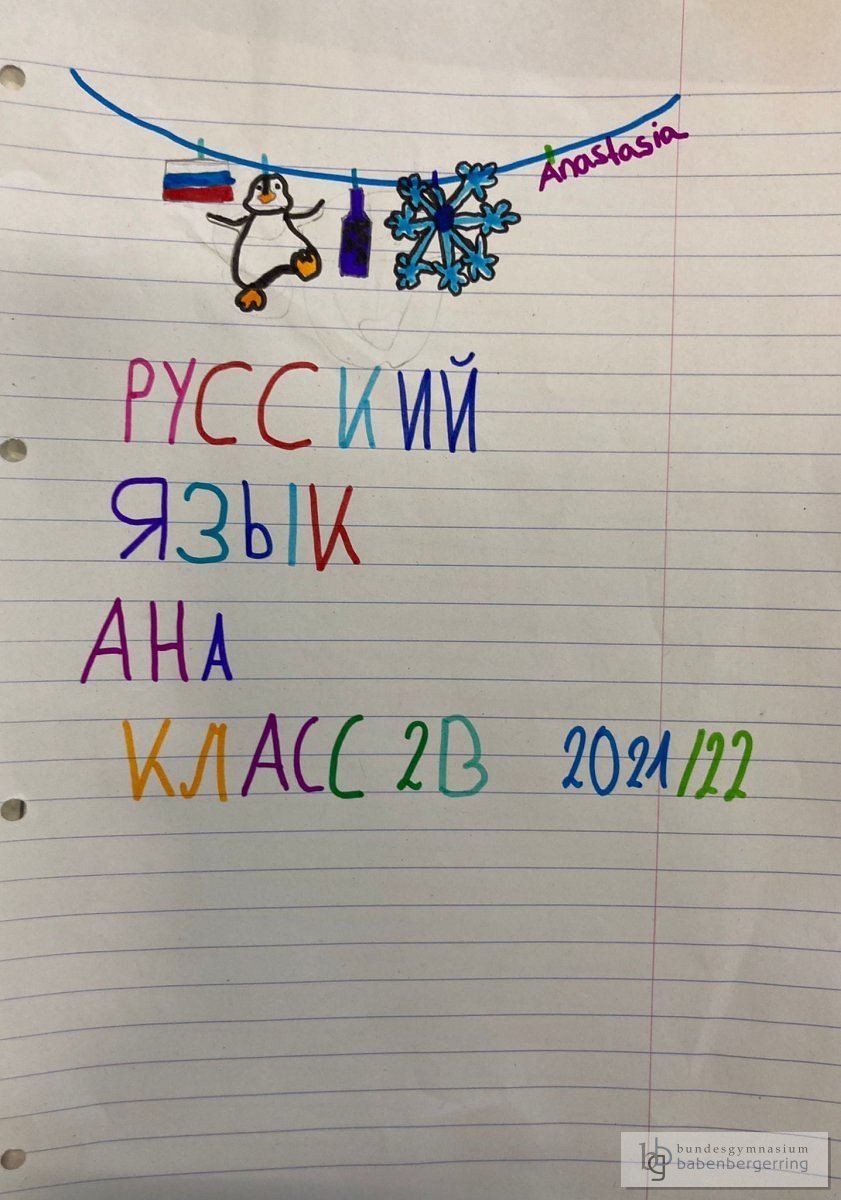 Anastasia
РУССКИЙ
ЯЗЫК
АНА
КЛАСС 2В 2021/22
bundesgymnasium
babenbergerring